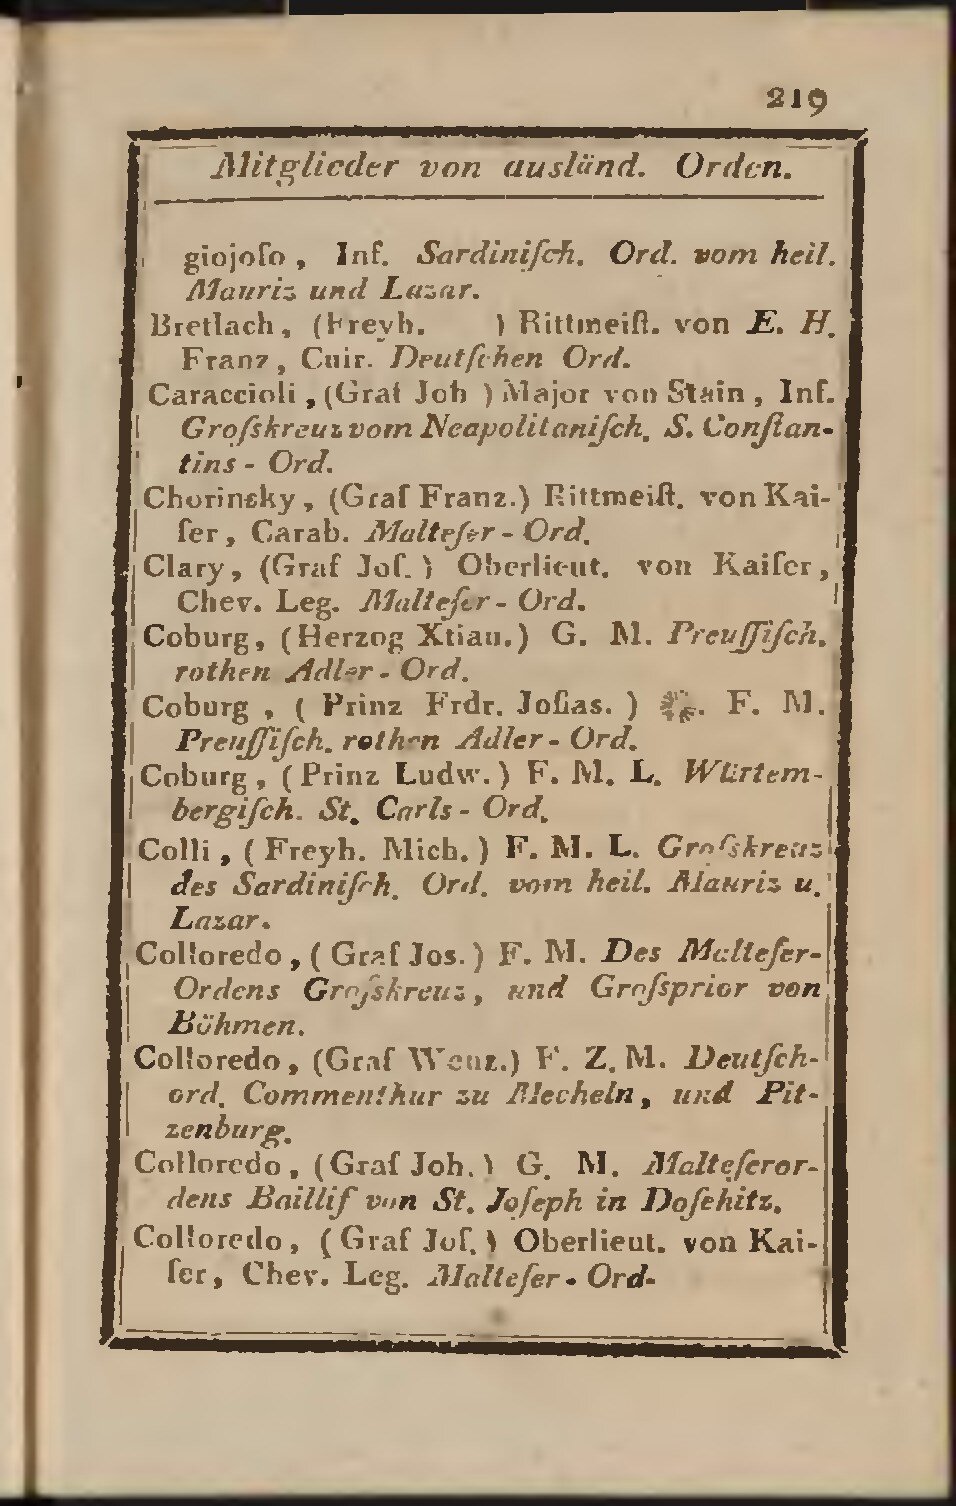 219
Mitglieder von ausländ. Orden.
giojoſo, Inf. Sardiniſch. Ord. vom heil.
Mauriz und Lazar.
Bretlach, (Freyh. ) Rittmeiſt. von E. H.
Franz, Cuir. Deutſchen Ord.
Caraccioli, (Graf Joh ) Major von Stain, Inf.
Groſskreuz vom Neapolitaniſch. S. Conſtan-
tins - Ord.
Chorinsky, (Graf Franz.) Rittmeiſt. von Kai-
ſer, Carab. Malteſer - Ord.
Clary, (Graf Joſ.) Oberlieut. von Kaiſer,
Chev. Leg. Malteſer - Ord.
Coburg, (Herzog Xtian.) G. M. Preuſſiſch.
rothen Adler - Ord.
Coburg, ( Prinz Frdr. Joſias. ) F. M.
Preuſſiſch. rothen Adler - Ord.
Coburg, (Prinz Ludw.) F. M. L. Würtem-
bergiſch. St. Carls - Ord.
Colli, ( Freyh. Mich.) F. M. L. Groſskreuz
des Sardiniſch. Ord. vom heil. Mauriz u.
Lazar.
Colloredo, ( Graf Jos.) F. M. Des Malteſer-
Ordens Groſskreuz, und Groſsprior von
Böhmen.
Colloredo, (Graf Wenz.) F. Z. M. Deutſch-
ord. Commenthur zu Mecheln, und Pit-
zenburg.
Colloredo, (Graf Joh.) G. M. Malteſeror-
dens Baillif von St. Joſeph in Doſchitz.
Colloredo, (Graf Joſ.) Oberlieut. von Kai-
ſer, Chev. Leg. Malteſer - Ord.